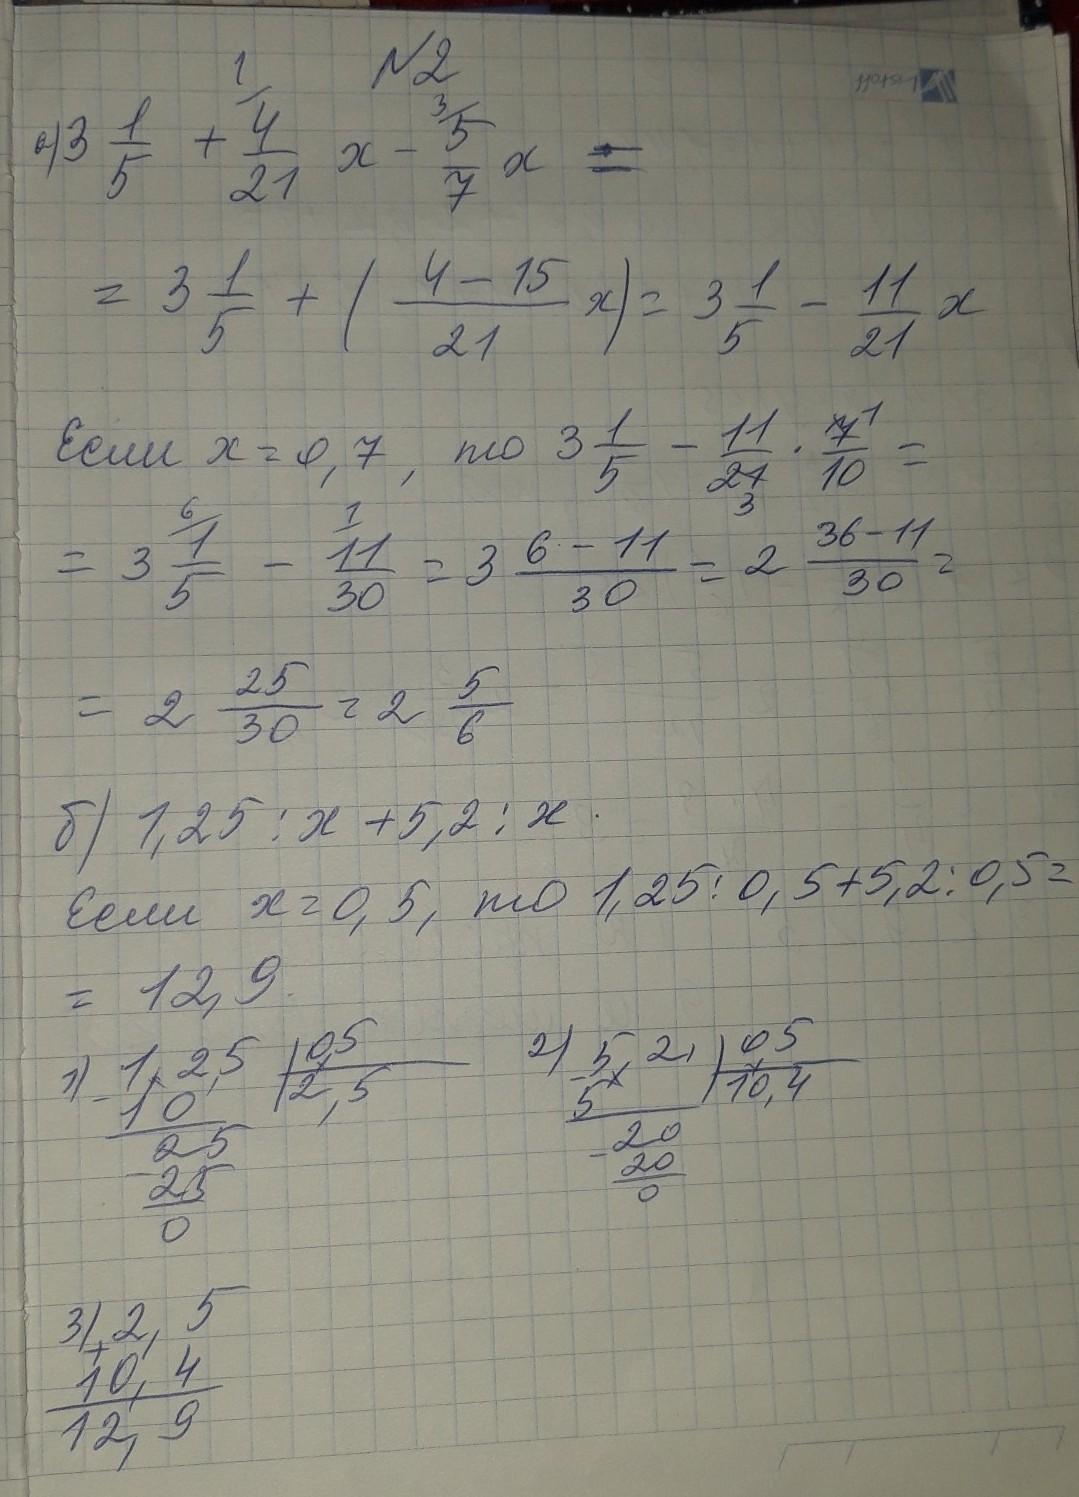 N2
а) 3 1/5 + 4/21 x - 5/7 x =
= 3 1/5 + ( (4 - 15)/21 x ) = 3 1/5 - 11/21 x
Если x = 0,7, то 3 1/5 - 11/21 · 7/10 =
= 3 1/5 - 11/30 = 3 (6 - 11)/30 = 2 (36 - 11)/30 =
= 2 25/30 = 2 5/6
б) 1,25 : x + 5,2 : x.
Если x = 0,5, то 1,25 : 0,5 + 5,2 : 0,5 =
= 12,9.
1) 1,2,5 | 0,5
- 10 | 2,5
25
- 25
0
2) 5,2, | 0,5
- 5 | 10,4
20
- 20
0
3) 2,5
+ 10,4
12,9
Listoff